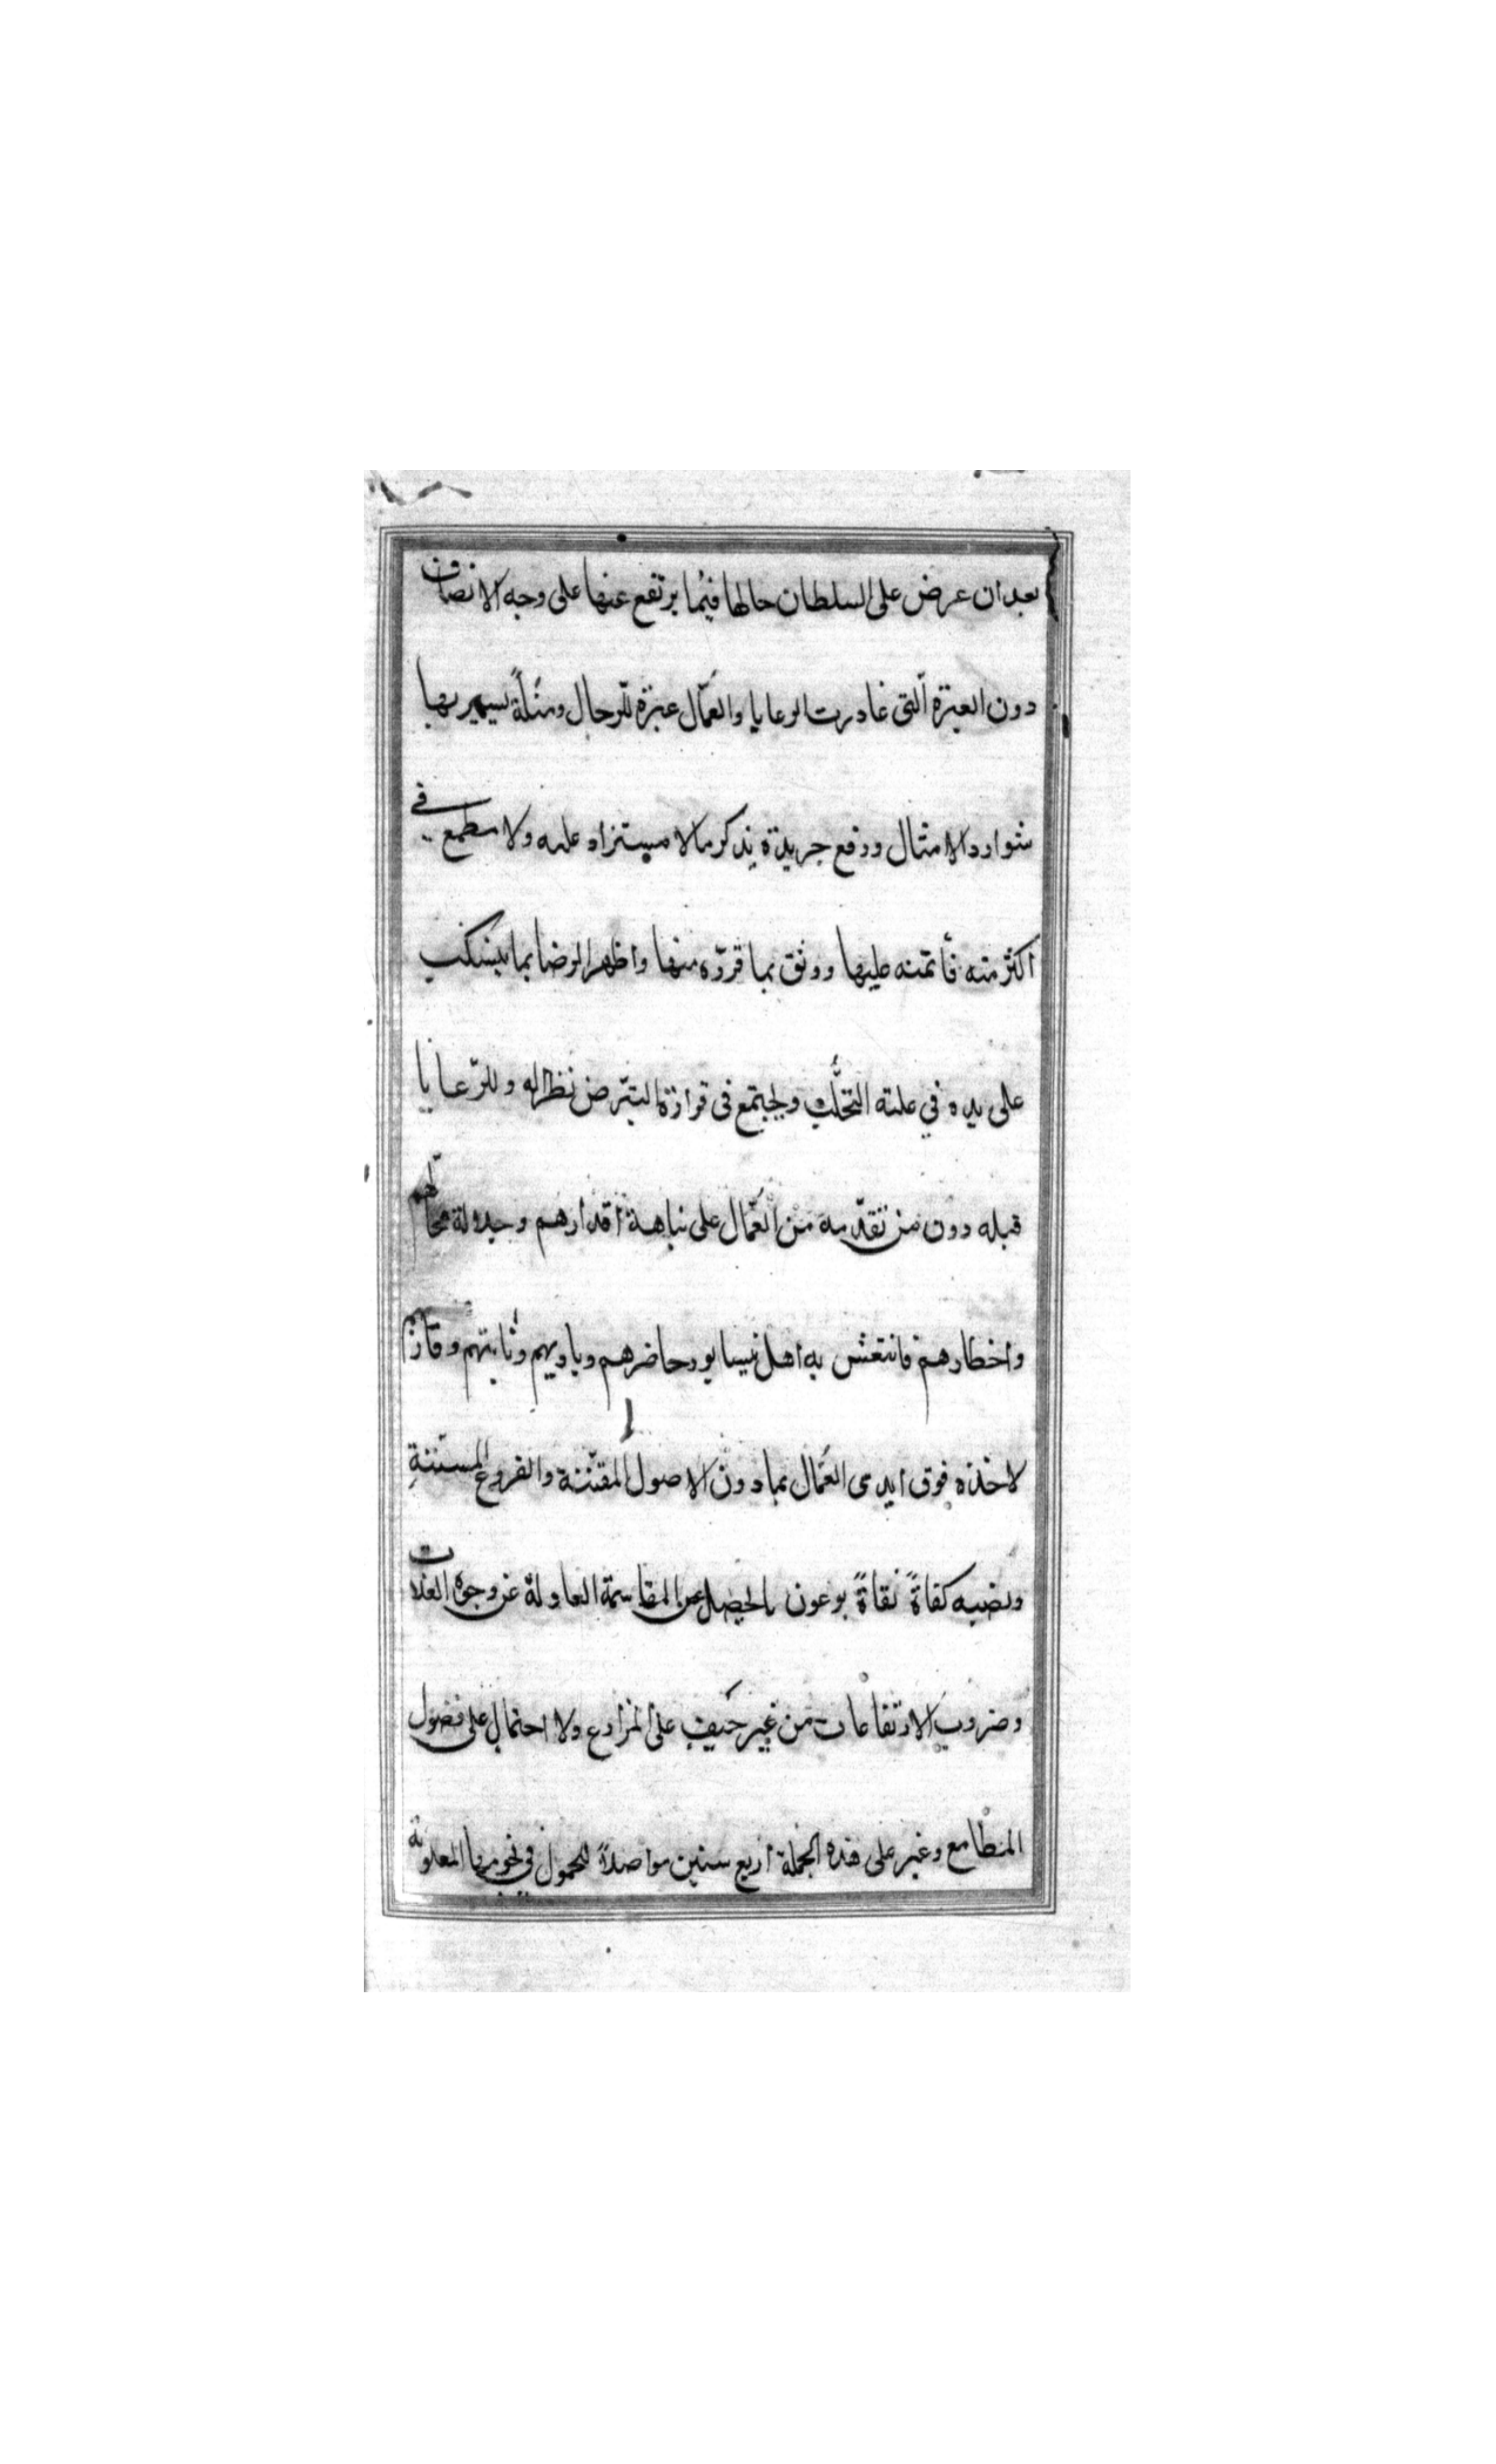 بعد ان عرض على السلطان حالها فيما يرتفع عنها على وجه الانصاف
دون العبرة التى غادرت الرعايا والعمّال عبرة للرجال ومثلةً يسير بها
شوارد الامثال ورفع جريدة يذكر مالا مستزاد عليه ولا مطمع فى
أكثر منه فأتمنه عليها ووثق بما قرّره منها واظهر الرضا بما ينسكب
على يده في علبته التحلّب ويجتمع فى قرارة التبرّض نظرا له وللرّعايا
قبله دون من تقدّمه من العمّال على نباهة أقدارهم وجلالة محالّهم
واخطارهم فانتعش به اهل نيسابور حاضرهم وباديهم وثابتهم وقارّهم
لاخذه فوق ايدى العمّال بما دون الاصول المقنّنة والفروع المسنّنةِ
ونصبه كفاةً ثقاةً يوعون ما يحصل من المقاسمة العادلة عن وجوه الغلات
وضروب الارتفاعات من غير حَيف على المزارع ولا احتمال على فضول
المطامع وغبر على هذه الجملة اربع سنين مواصلاً للحمول في نجومها المعلومة